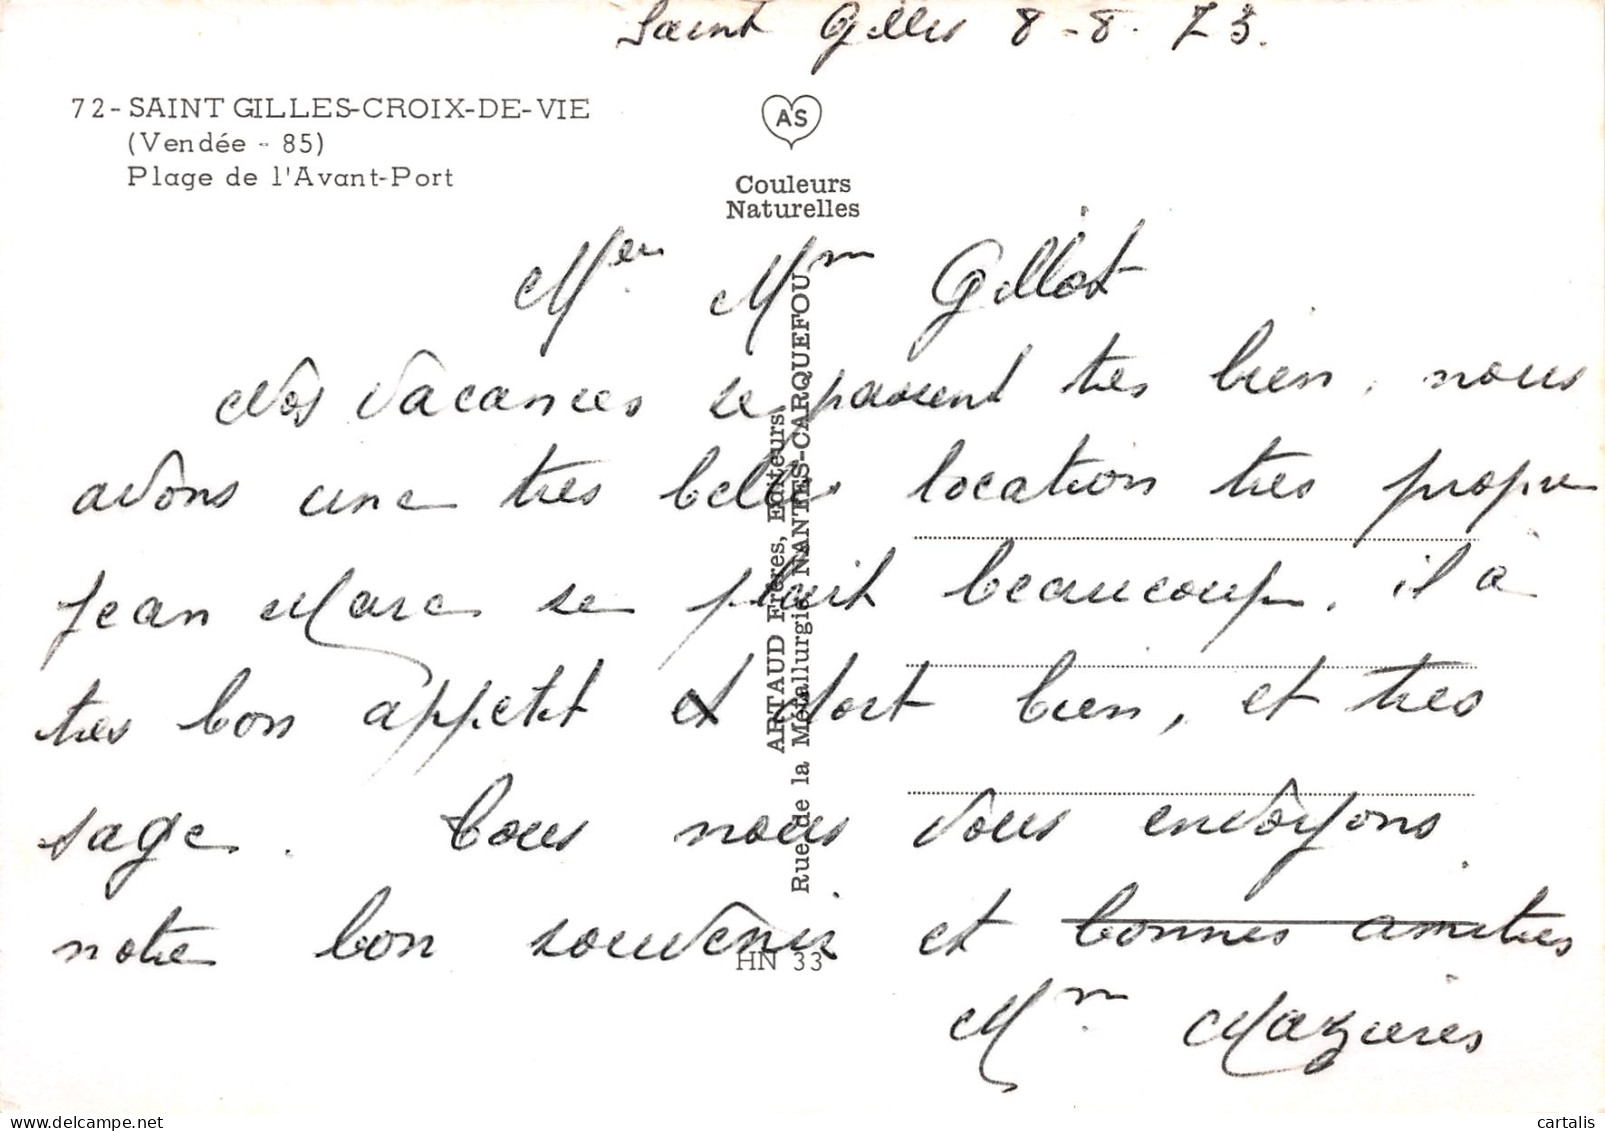 Saint Gilles 8-8.73.
72- SAINT GILLES-CROIX-DE-VIE
(Vendée - 85)
Plage de l'Avant-Port
AS
Couleurs
Naturelles
ARTAUD Frères, Editeurs
Rue de la Métallurgie NANTES-CARQUEFOU
Mm Gillot
Nos vacances se passent tres bien, nous
avons une tres belle location tres propre
Jean Marc se plait beaucoup, il a
tres bon appetit et dort bien, et tres
sage. Tous nous vous envoyons
notre bon souvenir et bonnes amities
HN 33
Mm Mazieres
cartalis